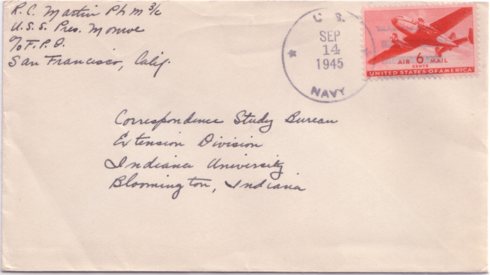 R.C. Martin Ph M 3/c
U.S.S. Pres. Monroe
℅ F.P.O.
San Francisco, Calif.
U. S.
SEP
14
1945
NAVY
6
CENTS
AIR MAIL
UNITED STATES OF AMERICA
Correspondence Study Bureau
Extension Division
Indiana University
Bloomington, Indiana